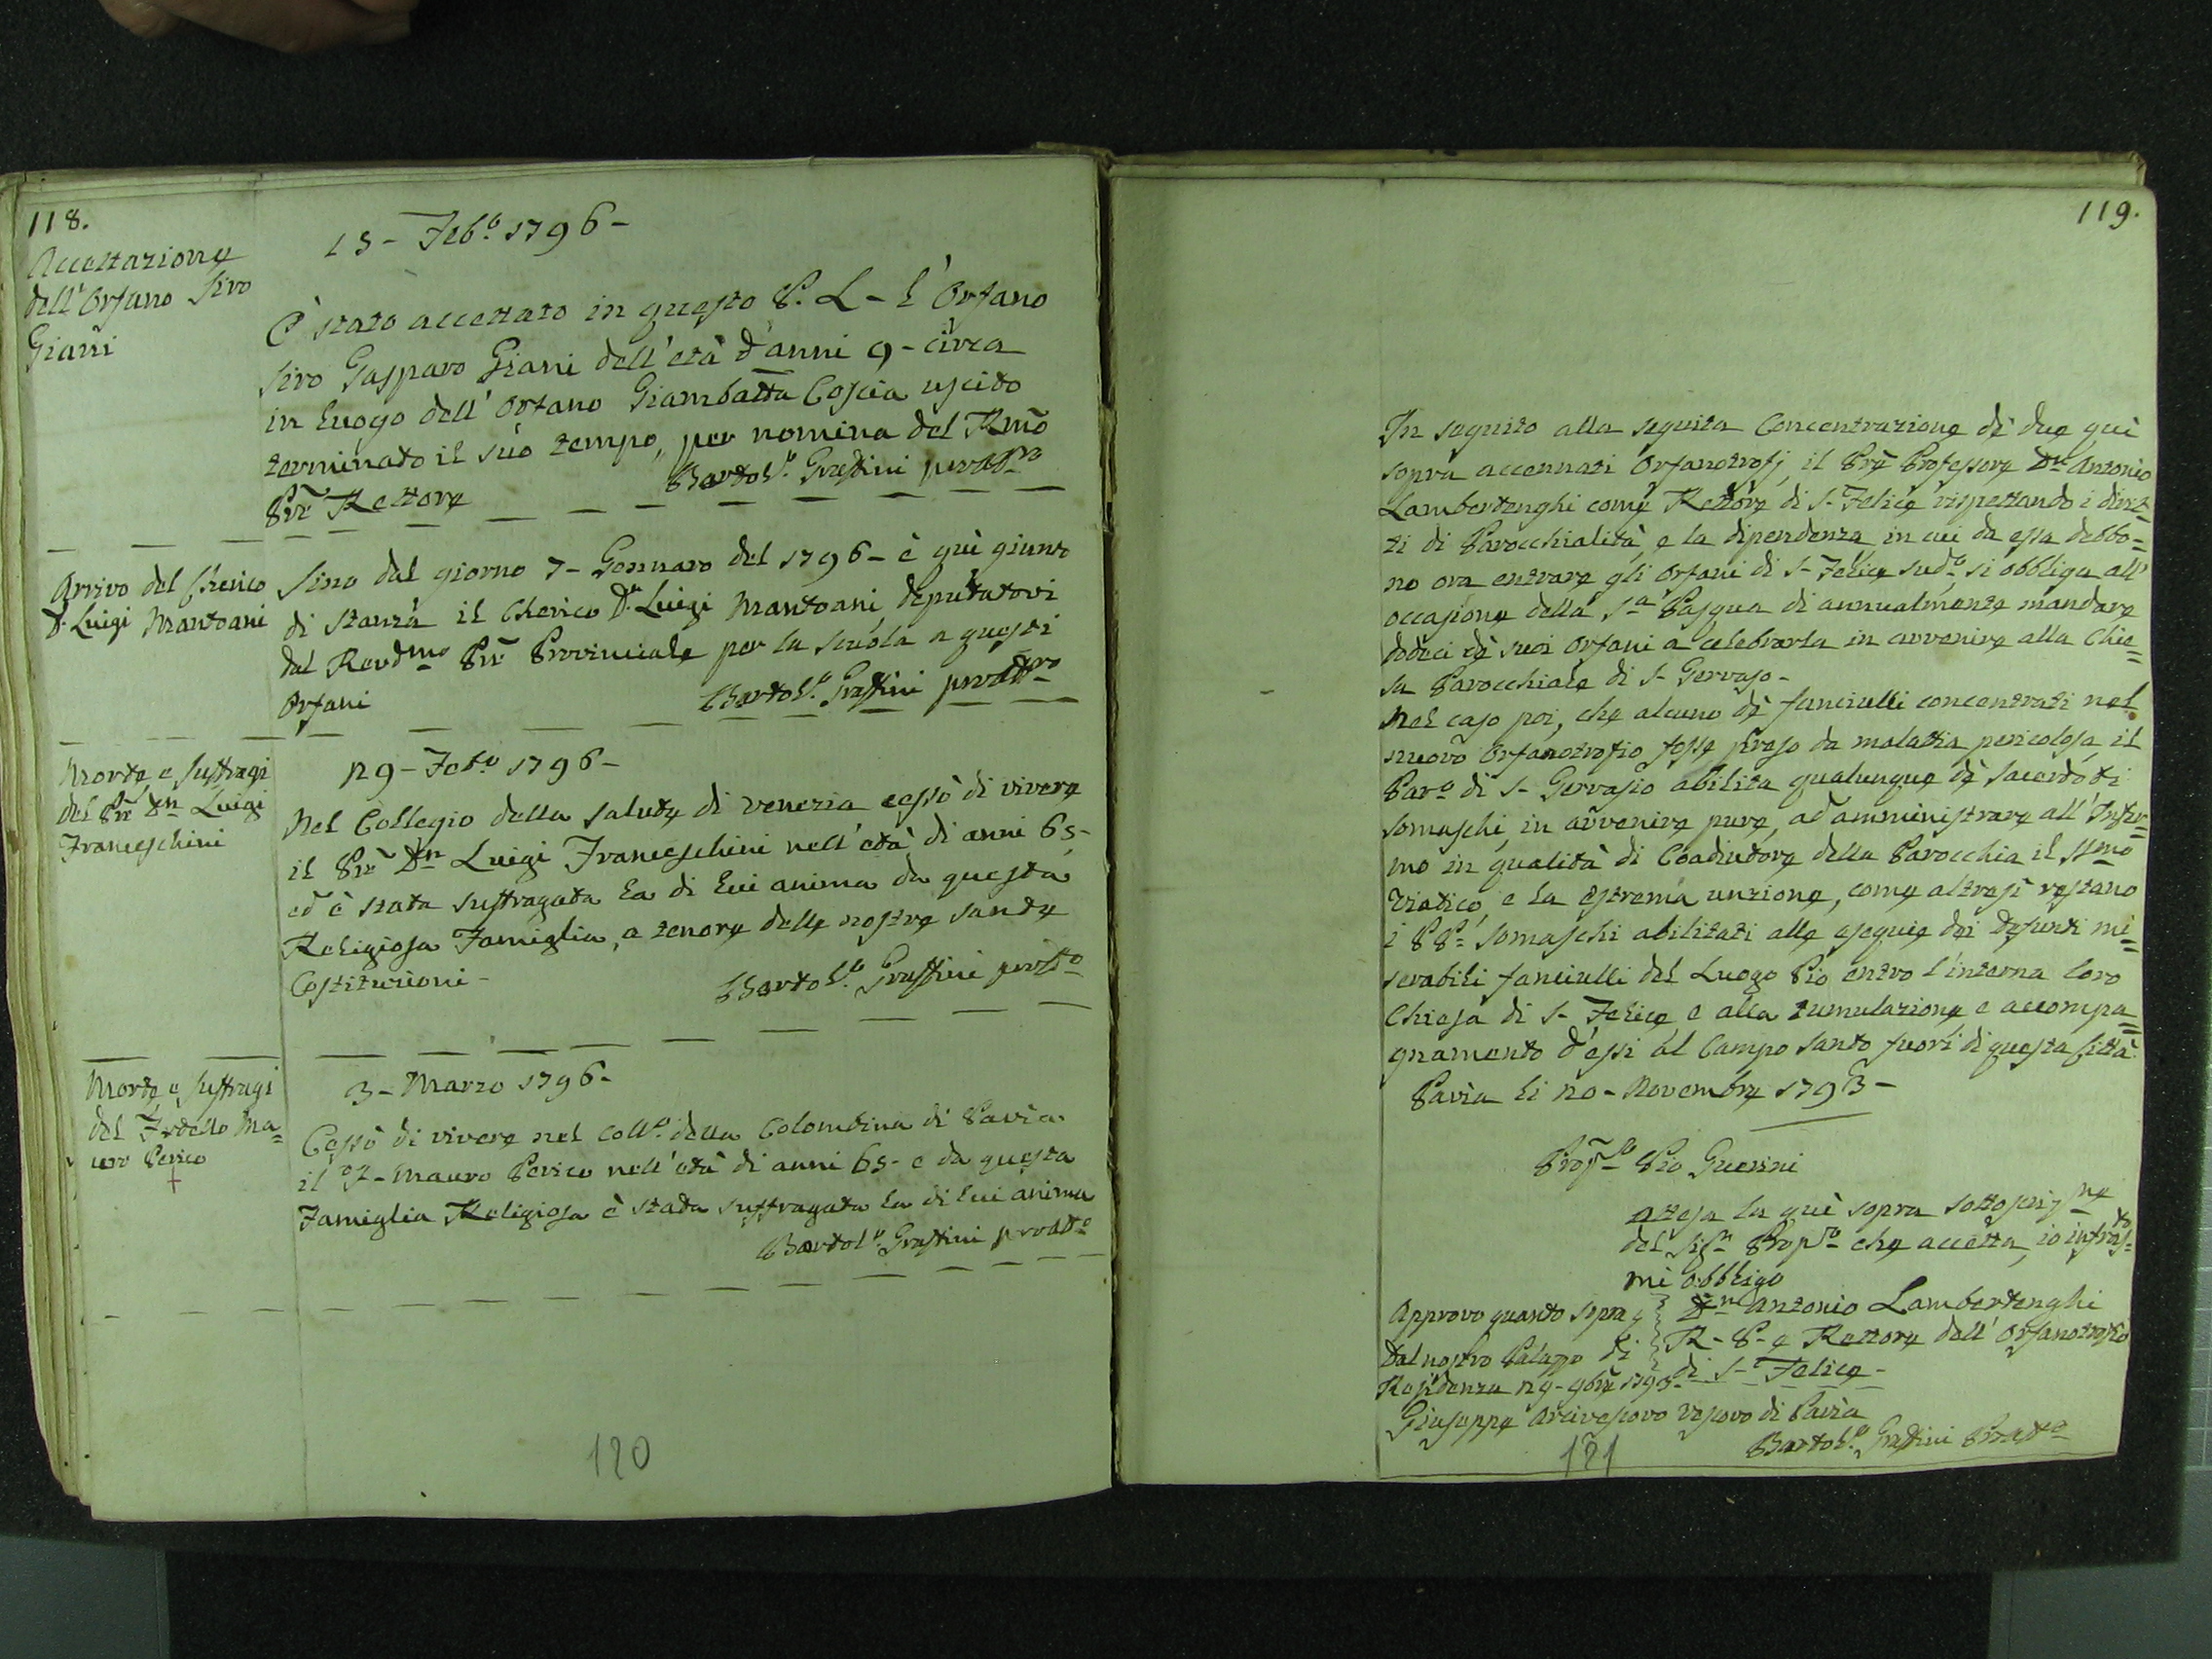 118.
Accettazione
dell'Orfano Siro
Giani
15- Feb.o 1796-
È stato accettato in questo P. L- l'Orfano
Siro Gasparo Giani dell'età d'anni 9- circa
in luogo dell'Orfano Giambatta Coscia uscito
terminato il suo tempo, per nomina del Rmo
Pre Rettore
Bartol.o Graffini proAtt.o
Arrivo del Cherico
D. Luigi Mantoani
Sino dal giorno 7- Gennaro del 1796- è quì giunto
di stanza il Cherico Dn Luigi Mantoani deputatovi
dal Revdmo Pre Provinciale per la scuola a questi
Orfani
Bartol.o Graffini proAtt.ro
Morte, e suffragi
del Pre Dn Luigi
Franceschini
29- Feb.o 1796-
Nel Collegio della Salute di Venezia cessò di vivere
il Pre Dn Luigi Franceschini nell'età di anni 65-
ed è stata suffragata la di lui anima da questa
Religiosa Famiglia, a tenore delle nostre sante
Costituzioni-
Bartol.o Graffini proAtt.o
Morte, e suffragi
del Frdello Ma=
uro Perico
3- Marzo 1796-
Cessò di vivere nel Coll.o della Colombina di Pavia
il Fr- Mauro Perico nell'età di anni 65- e da questa
Famiglia Religiosa è stata suffragata la di lui anima
Bartol.o Graffini proAtt.o
120
119.
In seguito alla seguita Concentrazione dè due quì
sopra accennati Orfanotrofj, il Pre Professore Dn Antonio
Lambertenghi come Rettore di S- Felice rispettando i dirit=
ti di Parocchialità, e la dipendenza in cui da essa debbo=
no ora entrare gli Orfani di S- Felice sud.o si obbliga all'
occasione della S.a Pasqua di annualmente mandare
dodici dè suoi Orfani a celebrarla in avvenire alla Chie=
sa Parocchiale di S- Gervaso-
Nel caso poi, che alcuno dè fanciulli concentrati nel
nuovo Orfanotrofio fosse preso da malattia pericolosa il
Par.o di S- Gervasio abilita qualunque dè Sacerdoti
Somaschi, in avvenire pure, ad amministrare all'Infer=
mo in qualità di Coadiutore della Parocchia il SSmo
Viatico, e la estrema unzione, come altresì restano
i PP.i Somaschi abilitati alle esequie dei Defunti mi=
serabili fanciulli del Luogo Pio entro l'interna loro
Chiesa di S- Felice e alla tumulazione e accompa=
gnamento d'essi al Campo Santo fuori di questa Città
Pavia li 20- Novembre 1793-
Prop.to Pio Guerini
Attesa la quì sopra sottoscriz.ne
del Sig.r Prop.to che accetta, io infras.to
mi obbligo
Dn Antonio Lambertenghi
R- P- e Rettore dell'Orfanotrofio
di S- Felice-
Approvo quanto sopra
Dal nostro Palazzo di
Residenza 29- 9bre 1793-
Giuseppe Arcivescovo Vescovo di Pavia
Bartol.o Graffini ProAtt.o
121